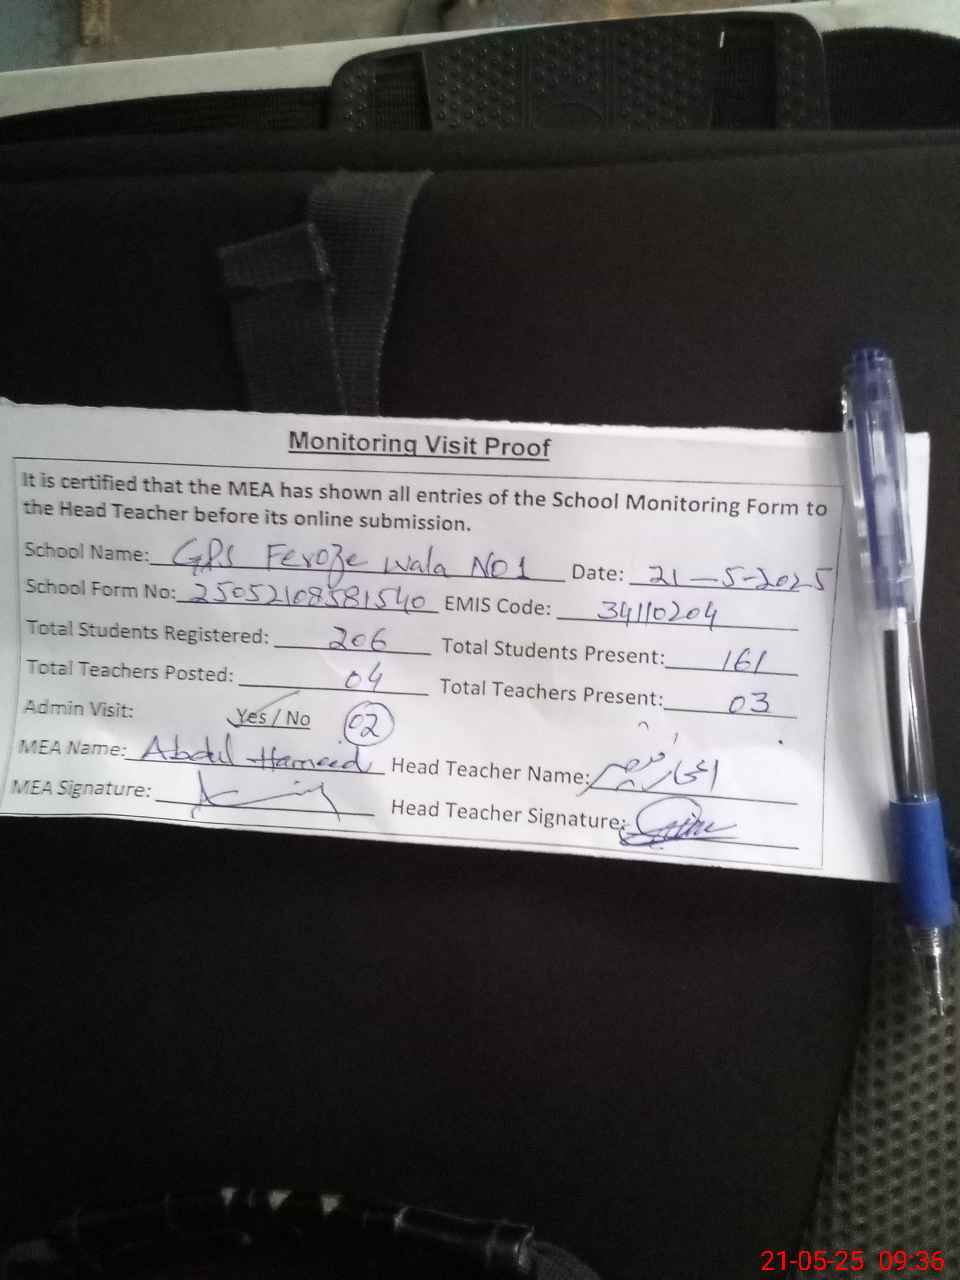 Monitoring Visit Proof
It is certified that the MEA has shown all entries of the School Monitoring Form to
the Head Teacher before its online submission.
School Name: GPS Feroze wala NO 1 Date: 21-5-2025
School Form No: 25052108581540 EMIS Code: 34110204
Total Students Registered: 206 Total Students Present: 161
Total Teachers Posted: 04 Total Teachers Present: 03
Admin Visit: Yes / No 02
MEA Name: Abdul Hameed Head Teacher Name:
MEA Signature: Head Teacher Signature:
21-05-25 09:36